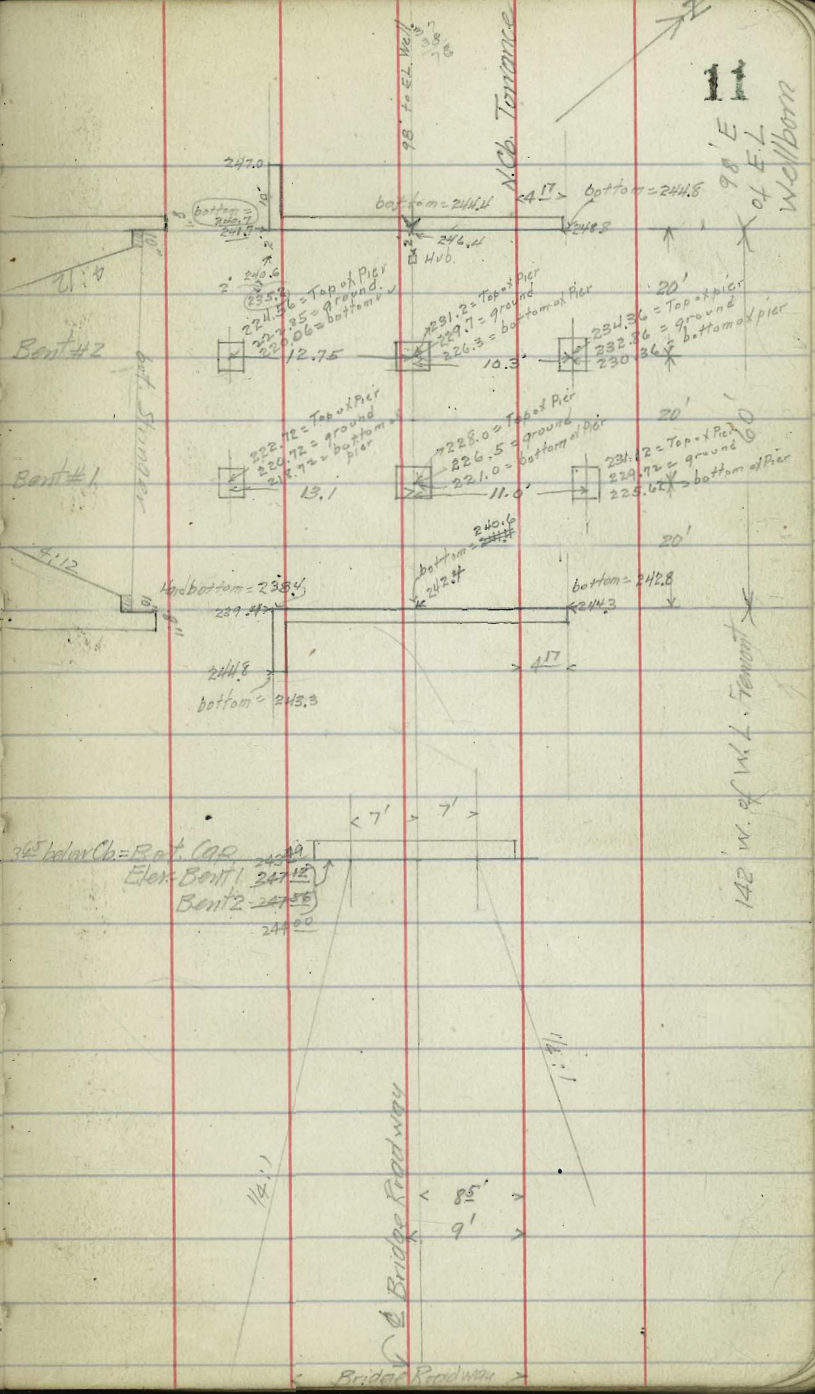 11
98' E
of E.L
Wellborn
98' to E.L. Well.
N. Cb. Torrance
247.0
10'
bottom = 244.4
4 17
bottom = 244.8
bottom =
240.7
241.7
246.4
Hub
248.8
10"
4:12
2'
240.6
(235.2)
224.56 = Top of Pier
222.85 = ground
220.06 = bottom
231.2 = Top of Pier
229.7 = ground
226.3 = bottom of Pier
234.36 = Top of pier
232.86 = ground
230.36 = bottom of pier
20'
Bent #2
12.75
10.3'
bot. Stringer
222.72 = Top of Pier
220.72 = ground
218.72 = bottom of pier
228.0 = Top of Pier
226.5 = ground
221.0 = bottom of Pier
231.12 = Top of Pier
229.72 = ground
225.62 = bottom of Pier
20'
60'
Bent #1
13.1
11.0'
20'
4:12
10"
8"
bottom = 238.4
239.4
bottom = 240.6
242.4
bottom = 242.8
244.3
244.8
bottom = 243.3
4 17
142' W. of W.L. Fremont
7' 7'
3 65 below Cb. = Bot. Cap
243 49
Elev. Bent 1 247 12
Bent 2 247 56
244 00
1/4:1
8 5'
9'
₵ Bridge Roadway
Bridge Roadway